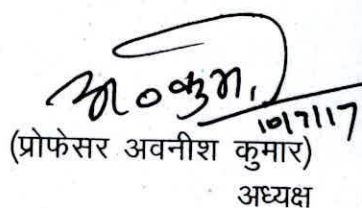 अ० कुमा.
10/7/17
(प्रोफेसर अवनीश कुमार)
अध्यक्ष